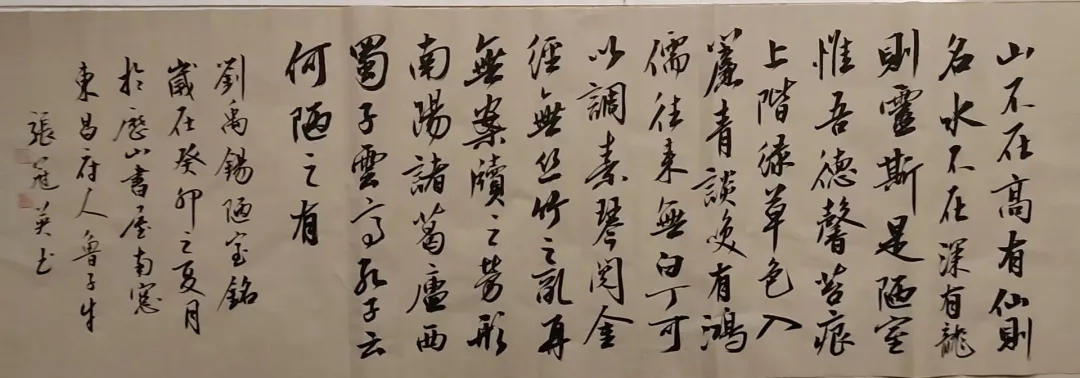 山不在高有仙則
名水不在深有龍
則靈斯是陋室
惟吾德馨苔痕
上階緑草色入
簾青談笑有鴻
儒往来無白丁可
以調素琴閱金
經無丝竹之亂耳
無案牘之勞形
南陽諸葛廬西
蜀子雲亭孔子云
何陋之有
劉禹錫陋室銘
歲在癸卯之夏月
於歷山書屋南窓
東昌府人魯子牛
張冠英书